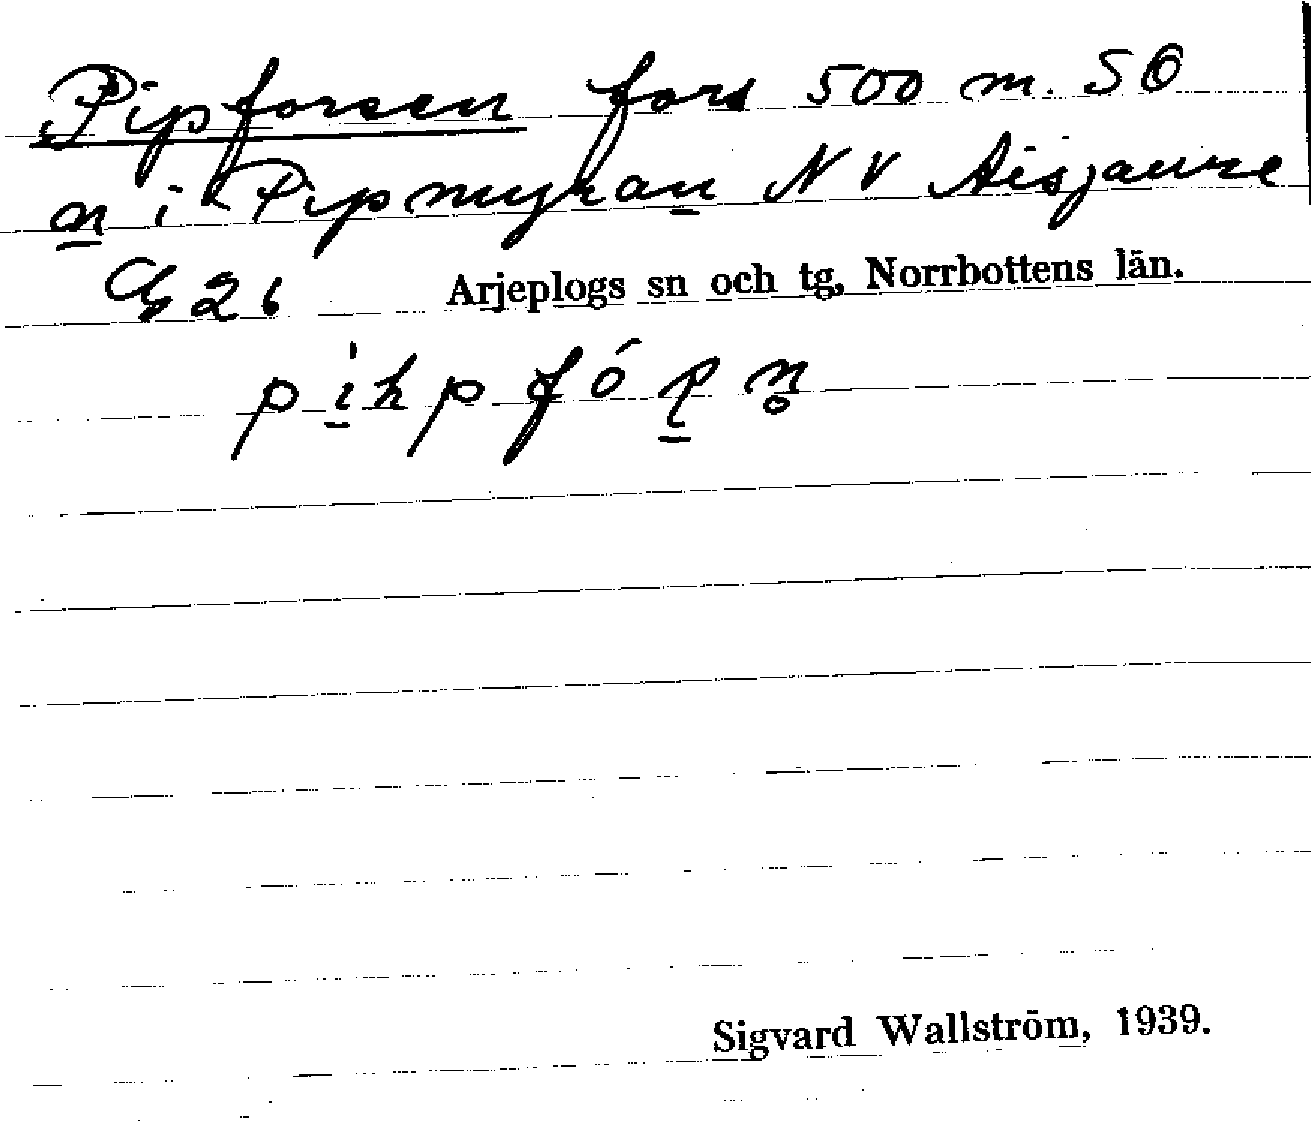 Pipforsen fors 500 m. SO
n i Pipmyran NV Aisjaure
G 26 Arjeplogs sn och tg, Norrbottens län.
Sigvard Wallström, 1939.